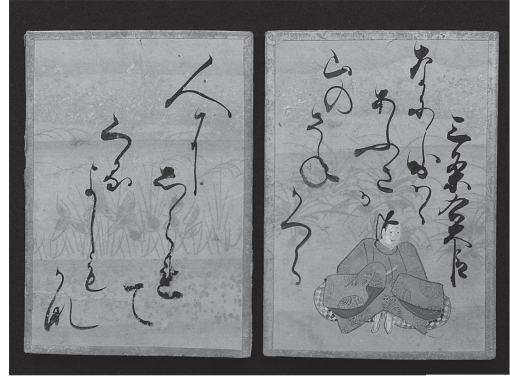 三条右大臣
なにしおはゝ
あふさか
山の
さねかつら
人に
しられて
くる
よしも
かな